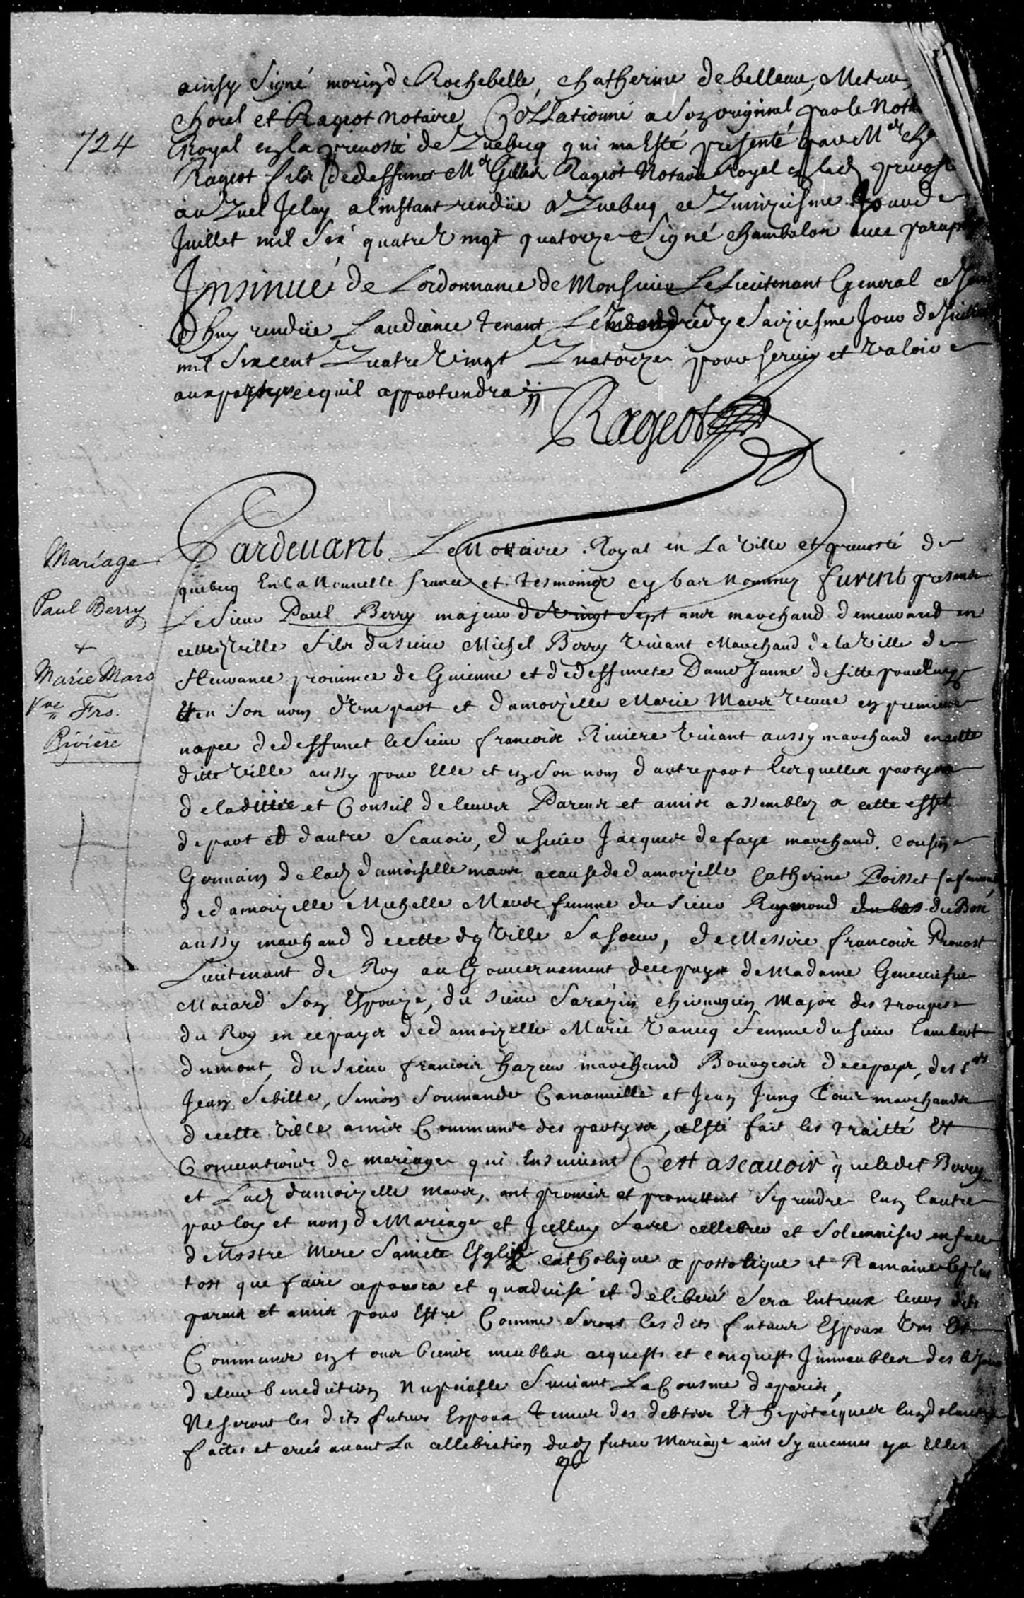 ainsy Signé morin de Rochebelle, Chatherine debelleau, Metru
Chorel et Rageot notaire, Collationné a Son original par le Nott
724
Royal en la prevosté de Quebecq qui ma Esté presenté par Mr Ch
Rageot fils de deffunct Mr Gilles Rageot Notaire Royal en lad prevosté
auquel Je lay a linstant rendüe a Quebecq ce quinziesme Jour de
Juillet mil Six quatre vingt quatorze Signé Chambalon avec paraphe
Jnsinué de Lordonnance de Monsieur Le Lieutenant General ce Jour
dhuy rendüe Laudiance tenant Le vendredy Saiziesme Jour de Juillet
mil Sixcent Quatre vingt Quatorze pour servir et valoir
aux partyes ce quil appartiendra
Rageot
Pardevant Le Nottaire Royal en La ville et prevosté de
Mariage
Paul Berry
+
Marie Mars
Vve Frs.
Rivière
quebecq En la Nouvelle france et tesmoins cy bas Nommez furent presents
Le Sieur Paul Berry majeur de vingt Sept ans marchand demeurant en
cette ville fils du sieur Michel Berry vivant Marchand de la ville de
province de Guienne et de deffuncte Dame Janne defitte pour luy
et en Son nom d'Une part et damoizelle Marie Mars veuve en premiere
nopce de deffunct le Sieur francois Riviere vivant aussy marchand en cette
ditte ville aussy pour Elle et en Son nom d'autre part lesquelles partyes
de ladvis et Conseil de leurs Parens et amis assemblez a cette effet
de part et dautre Scavoir, du sieur Jacques defaye marchand, Cousin
Germain de lad damoiselle mars a cause de damoizelle Catherine Poisset sa femme
de damoizelle Michelle Mars femme du sieur Raymond du Bos
aussy marchand de cette dte ville Sa soeur, de Messire francois Prevost
Lieutenant de Roy au Gouvernement de ce pays de Madame Genevieve
Macard Son Espouze, du Sieur Sarazin chirurgien Major des trouppes
du Roy en ce pays de damoizelle Marie Vancq femme du sieur Lambert
dumont, du sieur francois hazeur marchand Bourgeois de ce pays, des srs
Jean Sebille, Simon Soumande Cananville et Jean Jung tous marchands
de cette ville amis Communs des partyes, a Esté fait les traitté Et
Conventions de mariage qui Ensuivent Cest ascavoir que ledit Berry
et Lad damoizelle mars, ont promis et promettent Se prendre lun lautre
par loy et nom de Mariage et Jcelluy faire cellebrer et Solemniser en face
de Nostre Mere Saincte Esglize Catholique apostolique et Romaine le plus
tost que faire ce poura et quadvisé et deliberé Sera Entreux leurs dits
parens et amis pour Estre Comme Seront les dits futurs Espoux Uns Et
Communs en tous biens meubles acquests et conquests Jmmeubles des le Jour
de leur benediction Nuptialle Suivant La Coustume de paris,
Ne Seront les dits futurs Espoux tenus des debtes Et hipotecques lun de lautre
faites et crées avant La cellebration dud futur Mariage ains Sy aucunes y a Elles